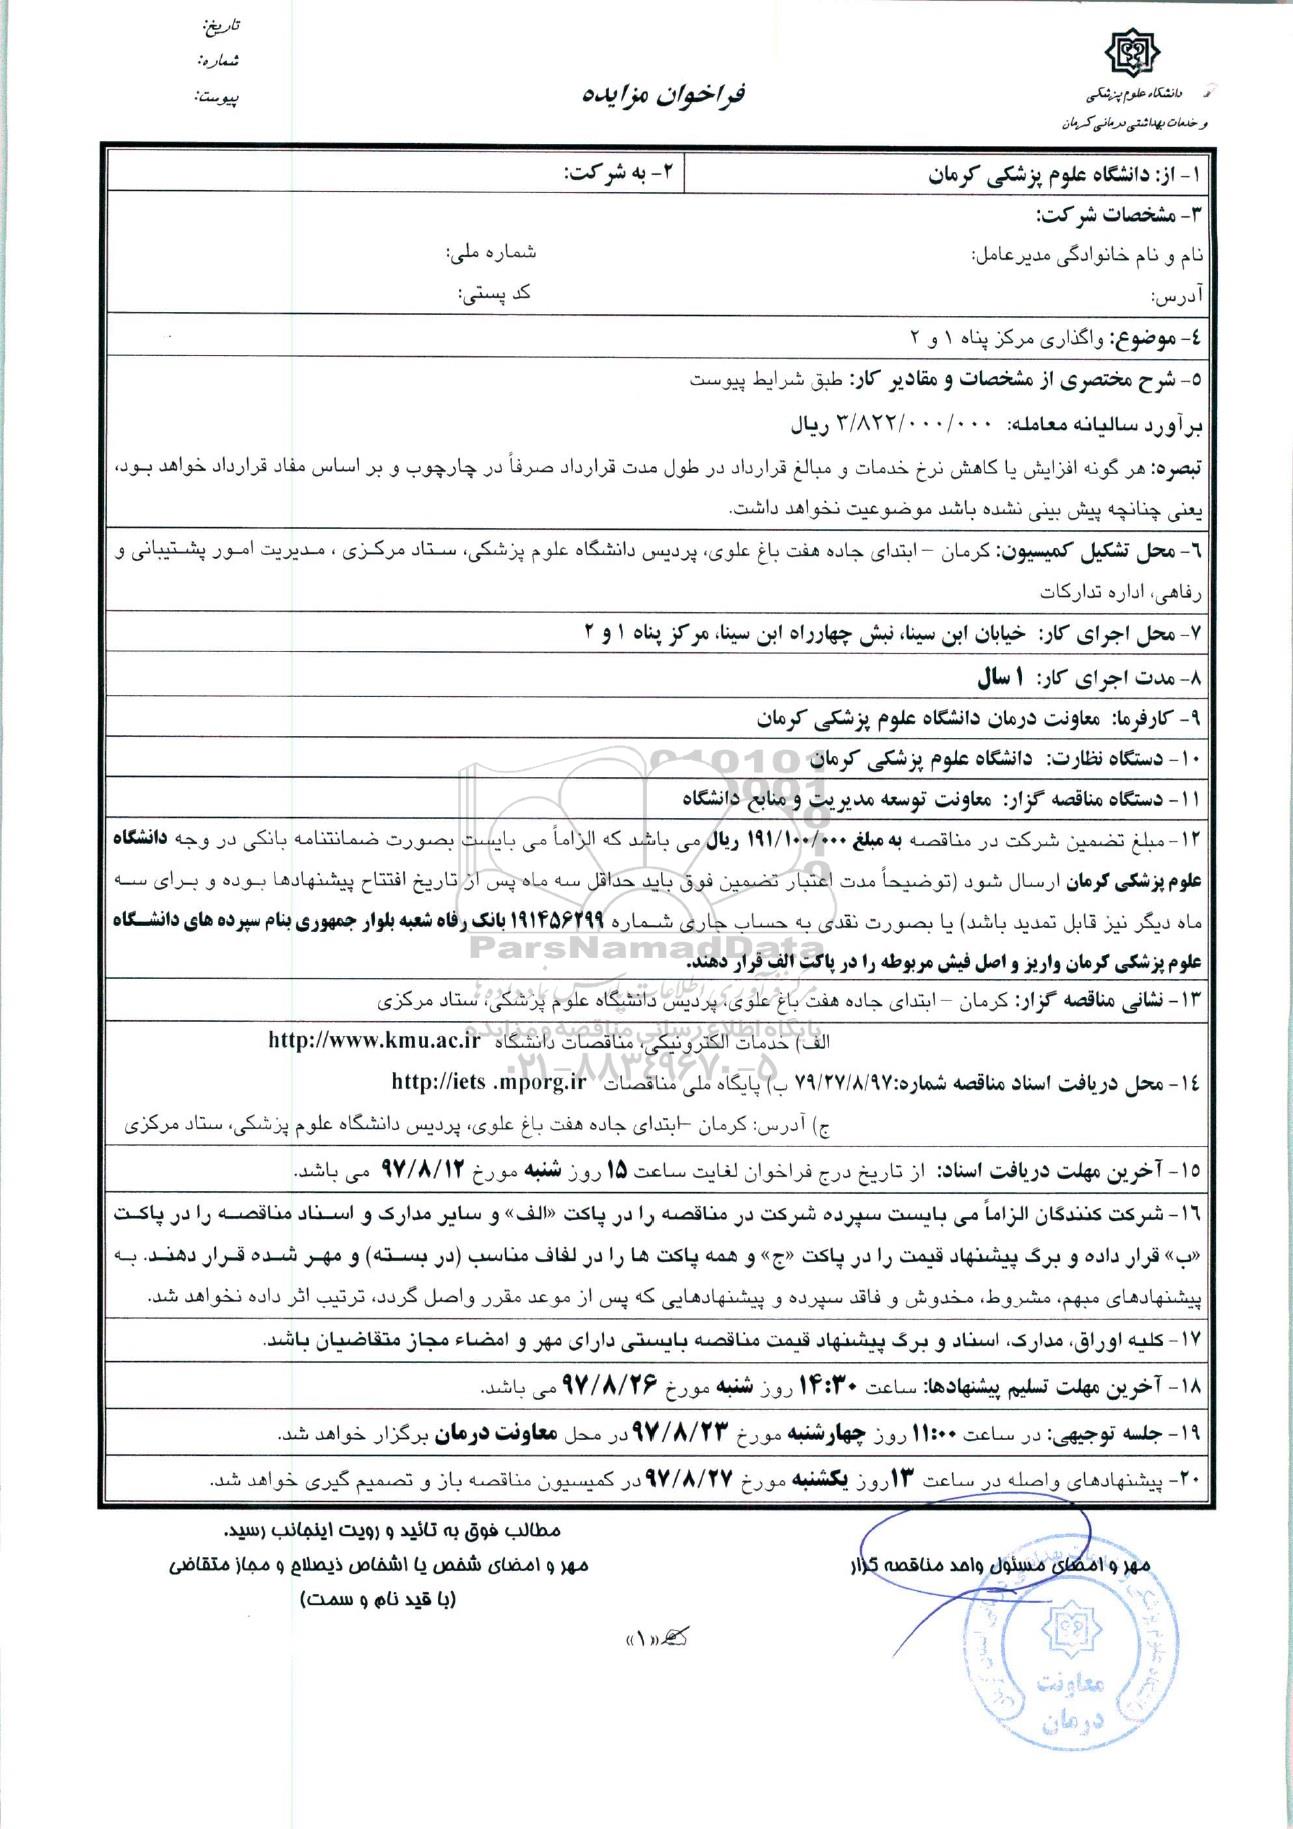 تاریخ:
شماره:
پیوست:
دانشگاه علوم پزشکی
و خدمات بهداشتی درمانی کرمان
فراخوان مزایده
۱- از: دانشگاه علوم پزشکی کرمان
۲- به شرکت:
۳- مشخصات شرکت:
نام و نام خانوادگی مدیرعامل: شماره ملی:
آدرس: کد پستی:
۴- موضوع: واگذاری مرکز پناه ۱ و ۲
۵- شرح مختصری از مشخصات و مقادیر کار: طبق شرایط پیوست
برآورد سالیانه معامله: ۳/۸۲۲/۰۰۰/۰۰۰ ریال
تبصره: هر گونه افزایش یا کاهش نرخ خدمات و مبالغ قرارداد در طول مدت قرارداد صرفاً در چارچوب و بر اساس مفاد قرارداد خواهد بود،
یعنی چنانچه پیش بینی نشده باشد موضوعیت نخواهد داشت.
۶- محل تشکیل کمیسیون: کرمان – ابتدای جاده هفت باغ علوی، پردیس دانشگاه علوم پزشکی، ستاد مرکزی ، مدیریت امور پشتیبانی و
رفاهی، اداره تدارکات
۷- محل اجرای کار: خیابان ابن سینا، نبش چهارراه ابن سینا، مرکز پناه ۱ و ۲
۸- مدت اجرای کار: ۱ سال
۹- کارفرما: معاونت درمان دانشگاه علوم پزشکی کرمان
۱۰- دستگاه نظارت: دانشگاه علوم پزشکی کرمان
۱۱- دستگاه مناقصه گزار: معاونت توسعه مدیریت و منابع دانشگاه
۱۲- مبلغ تضمین شرکت در مناقصه به مبلغ ۱۹۱/۱۰۰/۰۰۰ ریال می باشد که الزاماً می بایست بصورت ضمانتنامه بانکی در وجه دانشگاه
علوم پزشکی کرمان ارسال شود (توضیحاً مدت اعتبار تضمین فوق باید حداقل سه ماه پس از تاریخ افتتاح پیشنهادها بوده و برای سه
ماه دیگر نیز قابل تمدید باشد) یا بصورت نقدی به حساب جاری شماره ۱۹۱۴۵۶۲۹۹ بانک رفاه شعبه بلوار جمهوری بنام سپرده های دانشگاه
علوم پزشکی کرمان واریز و اصل فیش مربوطه را در پاکت الف قرار دهند.
۱۳- نشانی مناقصه گزار: کرمان – ابتدای جاده هفت باغ علوی، پردیس دانشگاه علوم پزشکی، ستاد مرکزی
الف) خدمات الکترونیکی، مناقصات دانشگاه http://www.kmu.ac.ir
۱۴- محل دریافت اسناد مناقصه شماره:۷۹/۲۷/۸/۹۷ ب) پایگاه ملی مناقصات http://iets .mporg.ir
ج) آدرس: کرمان –ابتدای جاده هفت باغ علوی، پردیس دانشگاه علوم پزشکی، ستاد مرکزی
۱۵- آخرین مهلت دریافت اسناد: از تاریخ درج فراخوان لغایت ساعت ۱۵ روز شنبه مورخ ۹۷/۸/۱۲ می باشد.
۱۶- شرکت کنندگان الزاماً می بایست سپرده شرکت در مناقصه را در پاکت «الف» و سایر مدارک و اسناد مناقصه را در پاکت
«ب» قرار داده و برگ پیشنهاد قیمت را در پاکت «ج» و همه پاکت ها را در لفاف مناسب (در بسته) و مهر شده قرار دهند. به
پیشنهادهای مبهم، مشروط، مخدوش و فاقد سپرده و پیشنهادهایی که پس از موعد مقرر واصل گردد، ترتیب اثر داده نخواهد شد.
۱۷- کلیه اوراق، مدارک، اسناد و برگ پیشنهاد قیمت مناقصه بایستی دارای مهر و امضاء مجاز متقاضیان باشد.
۱۸- آخرین مهلت تسلیم پیشنهادها: ساعت ۱۴:۳۰ روز شنبه مورخ ۹۷/۸/۲۶ می باشد.
۱۹- جلسه توجیهی: در ساعت ۱۱:۰۰ روز چهارشنبه مورخ ۹۷/۸/۲۳ در محل معاونت درمان برگزار خواهد شد.
۲۰- پیشنهادهای واصله در ساعت ۱۳ روز یکشنبه مورخ ۹۷/۸/۲۷ در کمیسیون مناقصه باز و تصمیم گیری خواهد شد.
مهر و امضای مسئول واحد مناقصه گزار
مطالب فوق به تائید و رویت اینجانب رسید.
مهر و امضای شخص یا اشخاص ذیصلاح و مجاز متقاضی
(با قید نام و سمت)
«۱»
معاونت
درمان
ParsNamadData
پایگاه اطلاع رسانی مناقصه و مزایده
۰۲۱-۸۸۳۴۹۶۷۰-۵